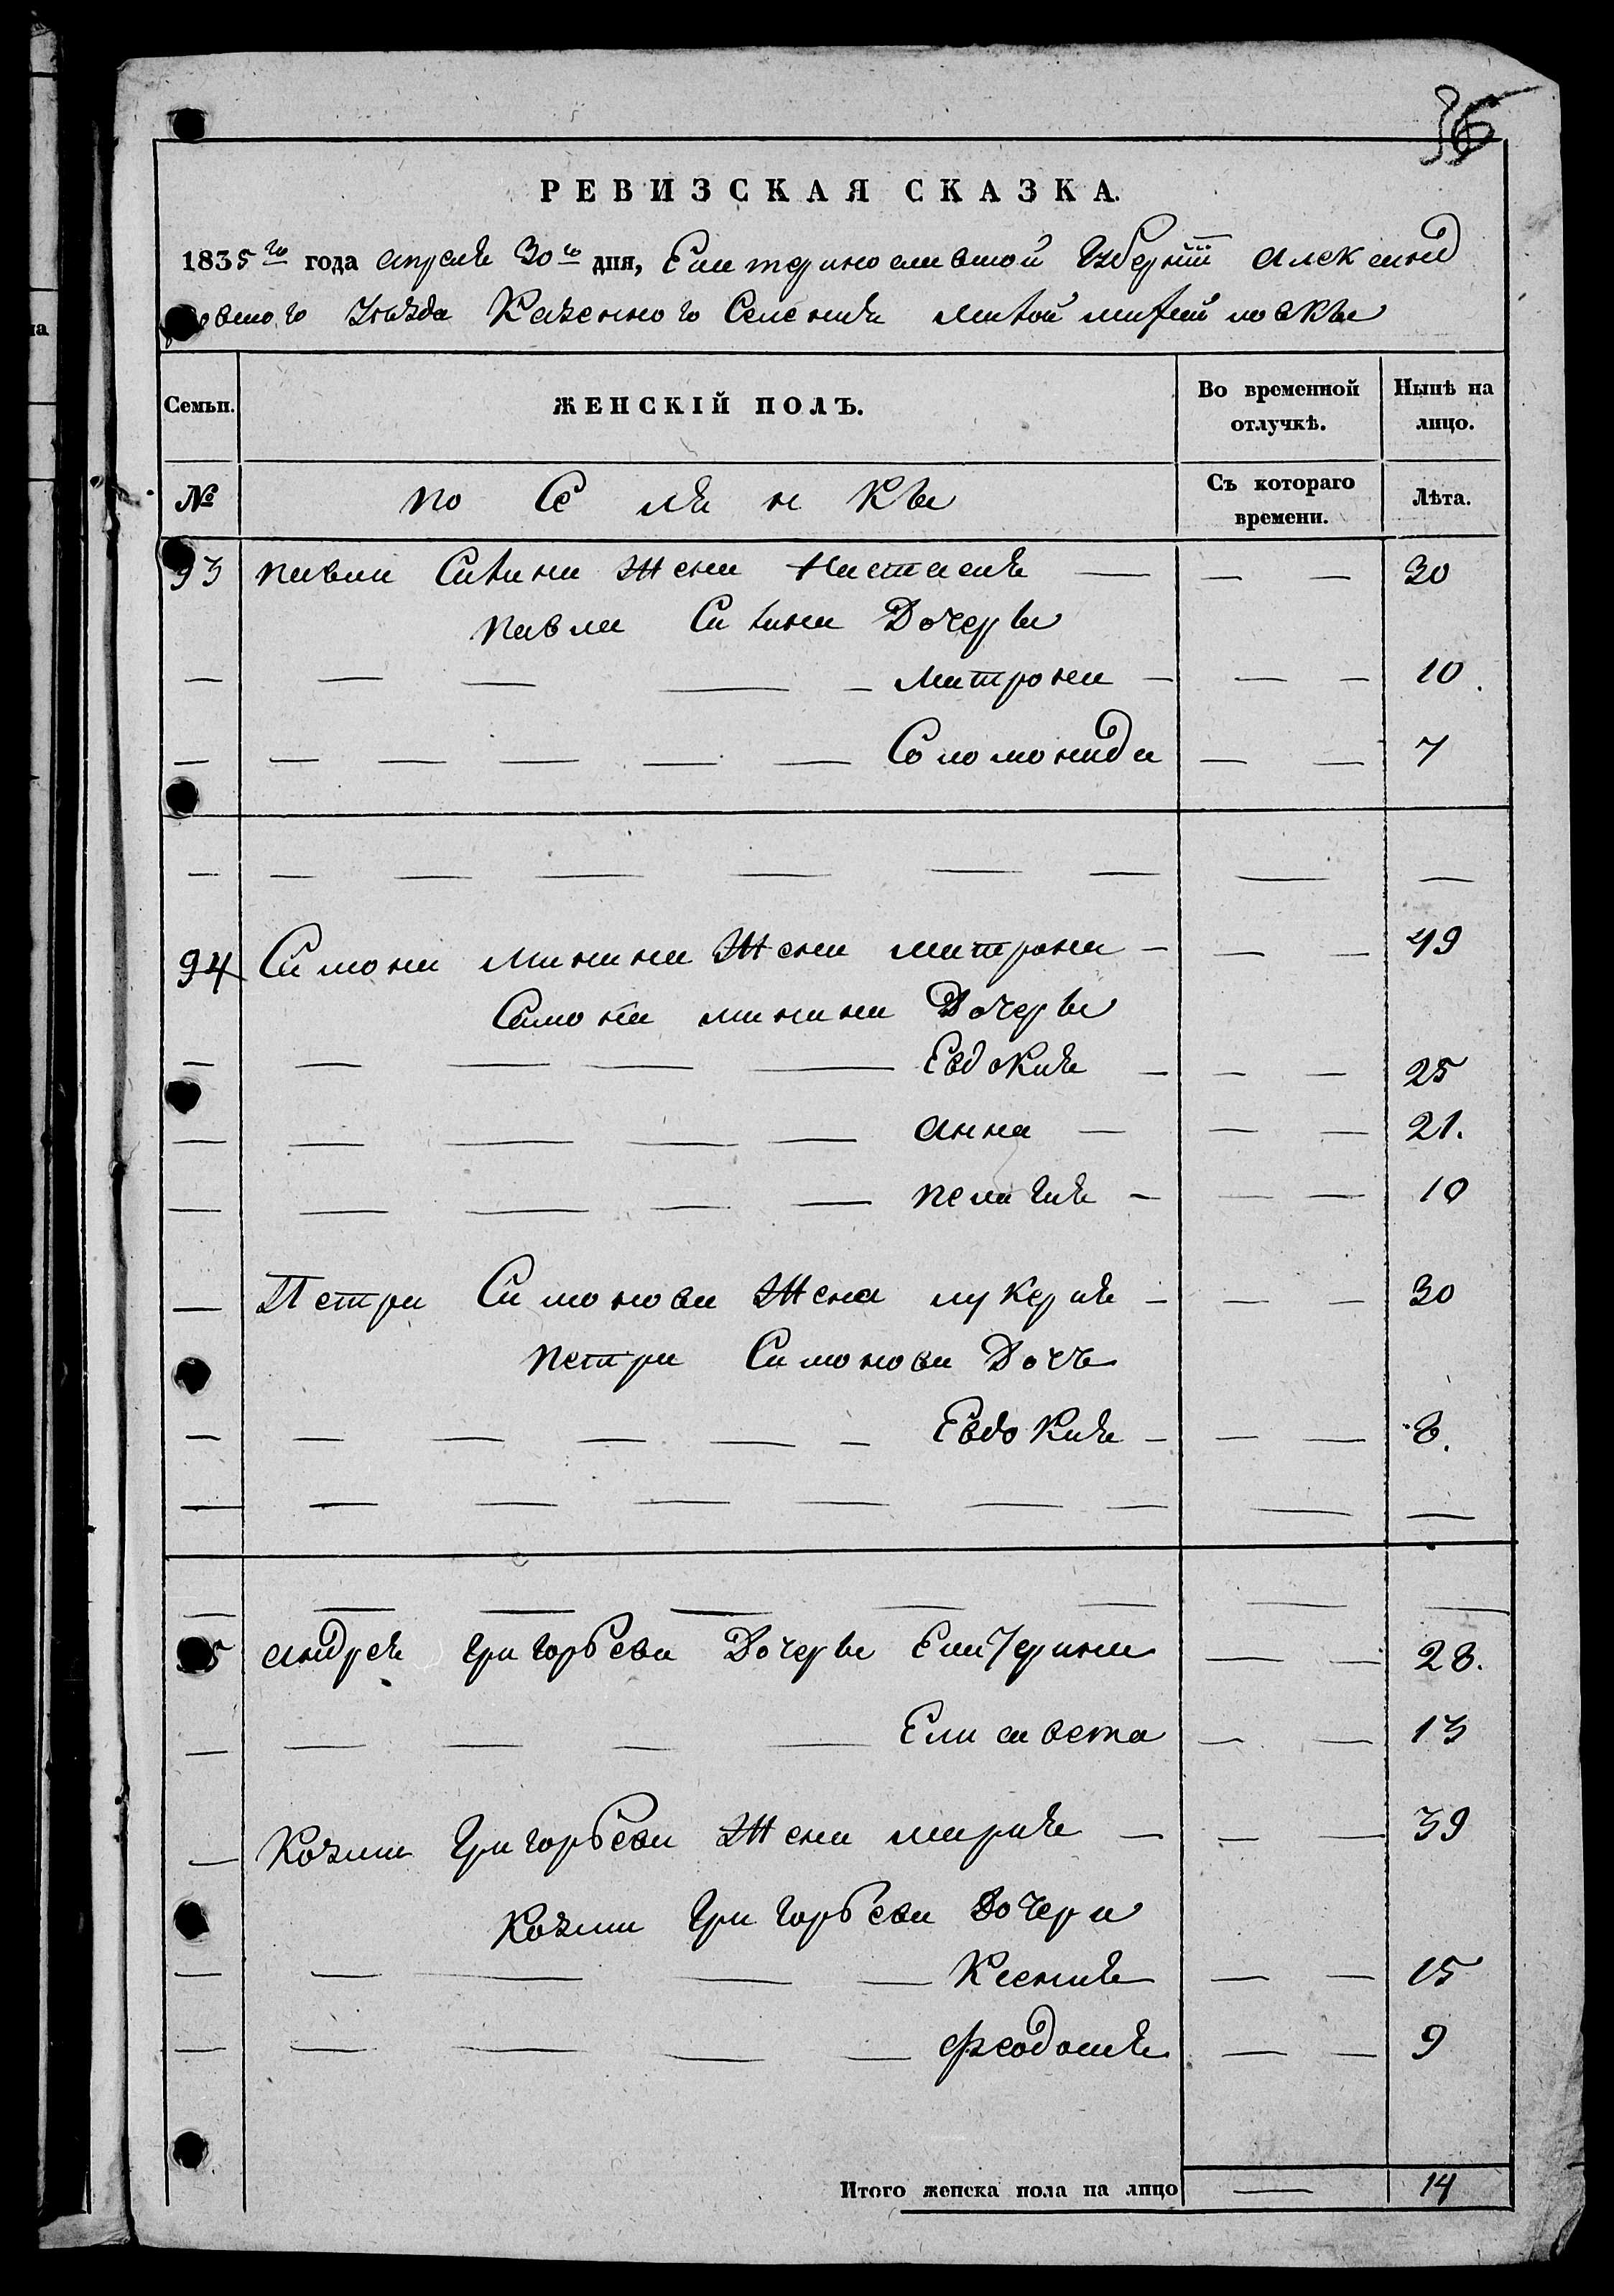 36
РЕВИЗСКАЯ СКАЗКА.
1835го года апреля 30го дня, Екатериносла вской Губернии Александ
ровского Уезда Казенного Селения малой михайловки
Семьи. ЖЕНСКІЙ ПОЛЪ. Во временной отлучкѣ. Нынѣ на лицо.
№ По Се ля н кы Съ котораго времени. Лѣта.
93 павла Савина Жена Настасия — — — 30
павла Савина Дочеры
— — — — — матрона — — — 10.
— — — — — — Соломонида — — 7
— — — — — — — — —
94 Симона минина Жена матрона — — — 49
Симона минина Дочеры
— — — — — Евдокия — — — 25
— — — — — анна — — — 21.
— — — — — пелагия — — — 10
— Петра Симонова Жена лукерия — — — 30
Петра Симонова Дочь
— — — — — — Евдокия — — — 8.
— — — — — — — — —
— — — — — — — —
95 андрея григорьева Дочеры Екатерина — — 28.
— — — — — Елисавета — — 13
— Козми Григорьева Жена мария — — — 39
Козми Григорьева Дочери
— — — — — Ксения — — 15
— — — — — феодосия — — 9
Итого женска пола на лицо — 14
на